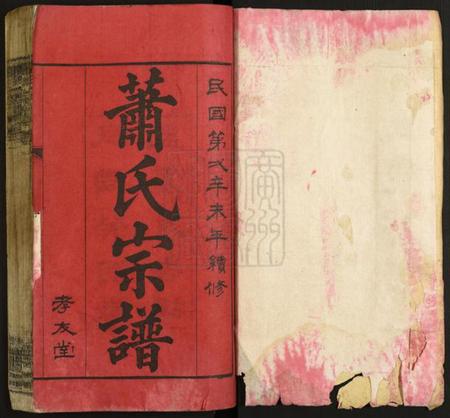 民國第弍辛未年續修
蕭氏宗譜
孝友堂